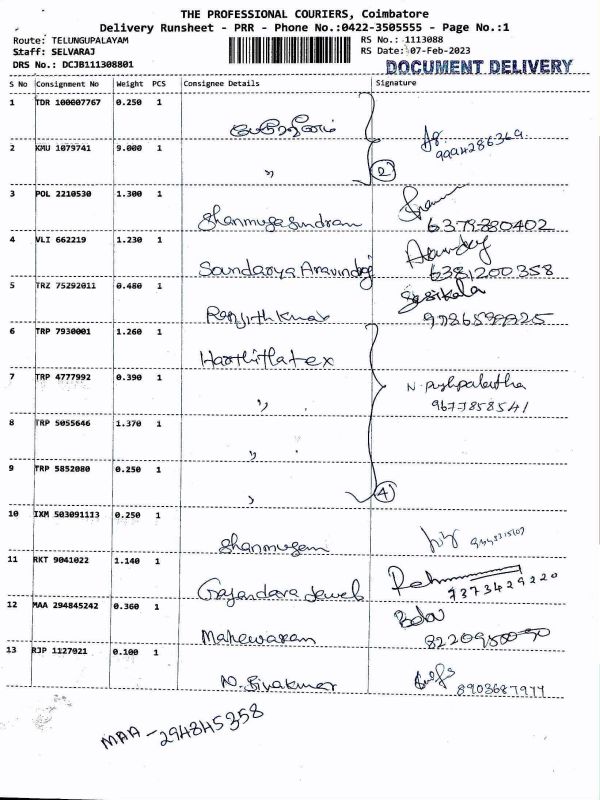 THE PROFESSIONAL COURIERS, Coimbatore
Delivery Runsheet - PRR - Phone No.:0422-3505555 - Page No.:1
Route: TELUNGUPALAYAM RS No.: 1113088
Staff: SELVARAJ RS Date: 07-Feb-2023
DRS No.: DCJB111308801 DOCUMENT DELIVERY
S No Consignment No Weight PCS Consignee Details Signature
1 TDR 100007767 0.250 1
2 KMU 1079741 9.000 1 " 2
3 POL 2210530 1.300 1
Shanmugasundram 6379880402
4 VLI 662219 1.230 1
Soundarya Aravindraj 6381200358
5 TRZ 75292011 0.480 1 Sasikala
Ranjith Kumar
6 TRP 7930001 1.260 1
7 TRP 4777992 0.390 1
" 9677858541
8 TRP 5055646 1.370 1
"
9 TRP 5852080 0.250 1
" 4
10 IXM 503091113 0.250 1
Shanmugam
11 RKT 9041022 1.140 1
7373429220
12 MAA 294845242 0.360 1
Maheswaran
13 RJP 1127021 0.100 1
N. Sivakumar 8903687977
MAA - 294845358